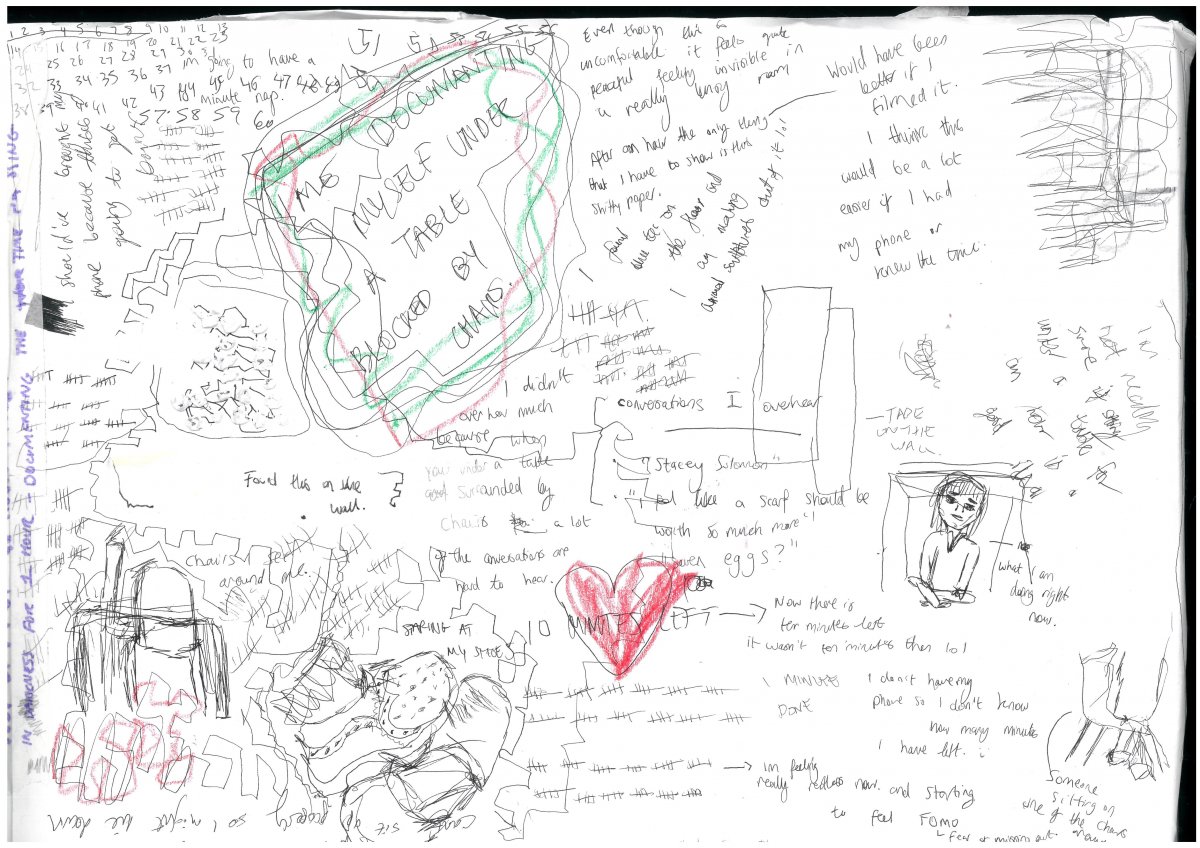 1 2 3 4 5 6 7 8 9 10 11 12 13
14 15 16 17 18 19 20 21 22 23
24 25 26 27 28 29 30 31 im going to have a
32 33 34 35 36 37
38 39 40 41 42 43 44 45 46 47 48 49
minute nap.
57 58 59 60
51 52 53 54 55 56
I should've brought my
phone because this is
going to get
boring
ME DOCUMENTING
MYSELF UNDER
A TABLE
BLOCKED BY
CHAIRS.
Even though this is
uncomfortable it feels quite
peaceful feeling invisible in
a really busy room
After an hour the only thing
that I have to show is this
shitty paper.
I found
blue tac on
the floor and
I am making
animal sculptures out of it lol
Would have been
better if I
filmed it.
I think this
would be a lot
easier if I had
my phone or
knew the time.
IN DARKNESS FOR 1 HOUR - DOCUMENTING THE TIME PASSING
I didn't
overhear much
because when
your under a table
surrounded by
chairs a lot
of the conversations are
hard to hear.
conversations I overhear
"Stacey Solomon"
"I feel like a scarf should be
worth so much more"
eggs?"
TAPE
ON THE
WALL
Found this on the
wall.
what I am
doing right
now.
Chairs I set
around me.
STARING AT
MY SHOES
10 MINUTES LEFT
Now there is
ten minutes left
it wasn't ten minutes then lol
1 MINUTE
DONE
I don't have my
phone so I don't know
how many minutes
I have left.
im feeling
really restless now. and starting
to feel FOMO
fear of missing out
Someone
sitting on
one of the chairs
around
cant sit up properly so I might lie down